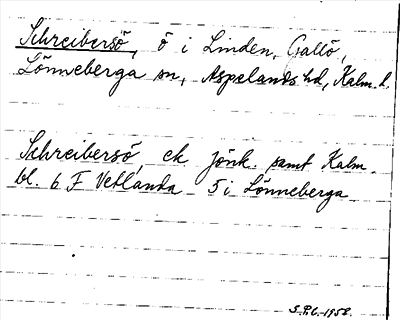 Schreibersö, ö i Linden, Gallö,
Lönneberga sn, Aspelands hd, Kalm. l.
Schreibersö, ek. Jönk. samt Kalm.
bl. 6 F Vetlanda 5 i Lönneberga
S.P.G. 1952.